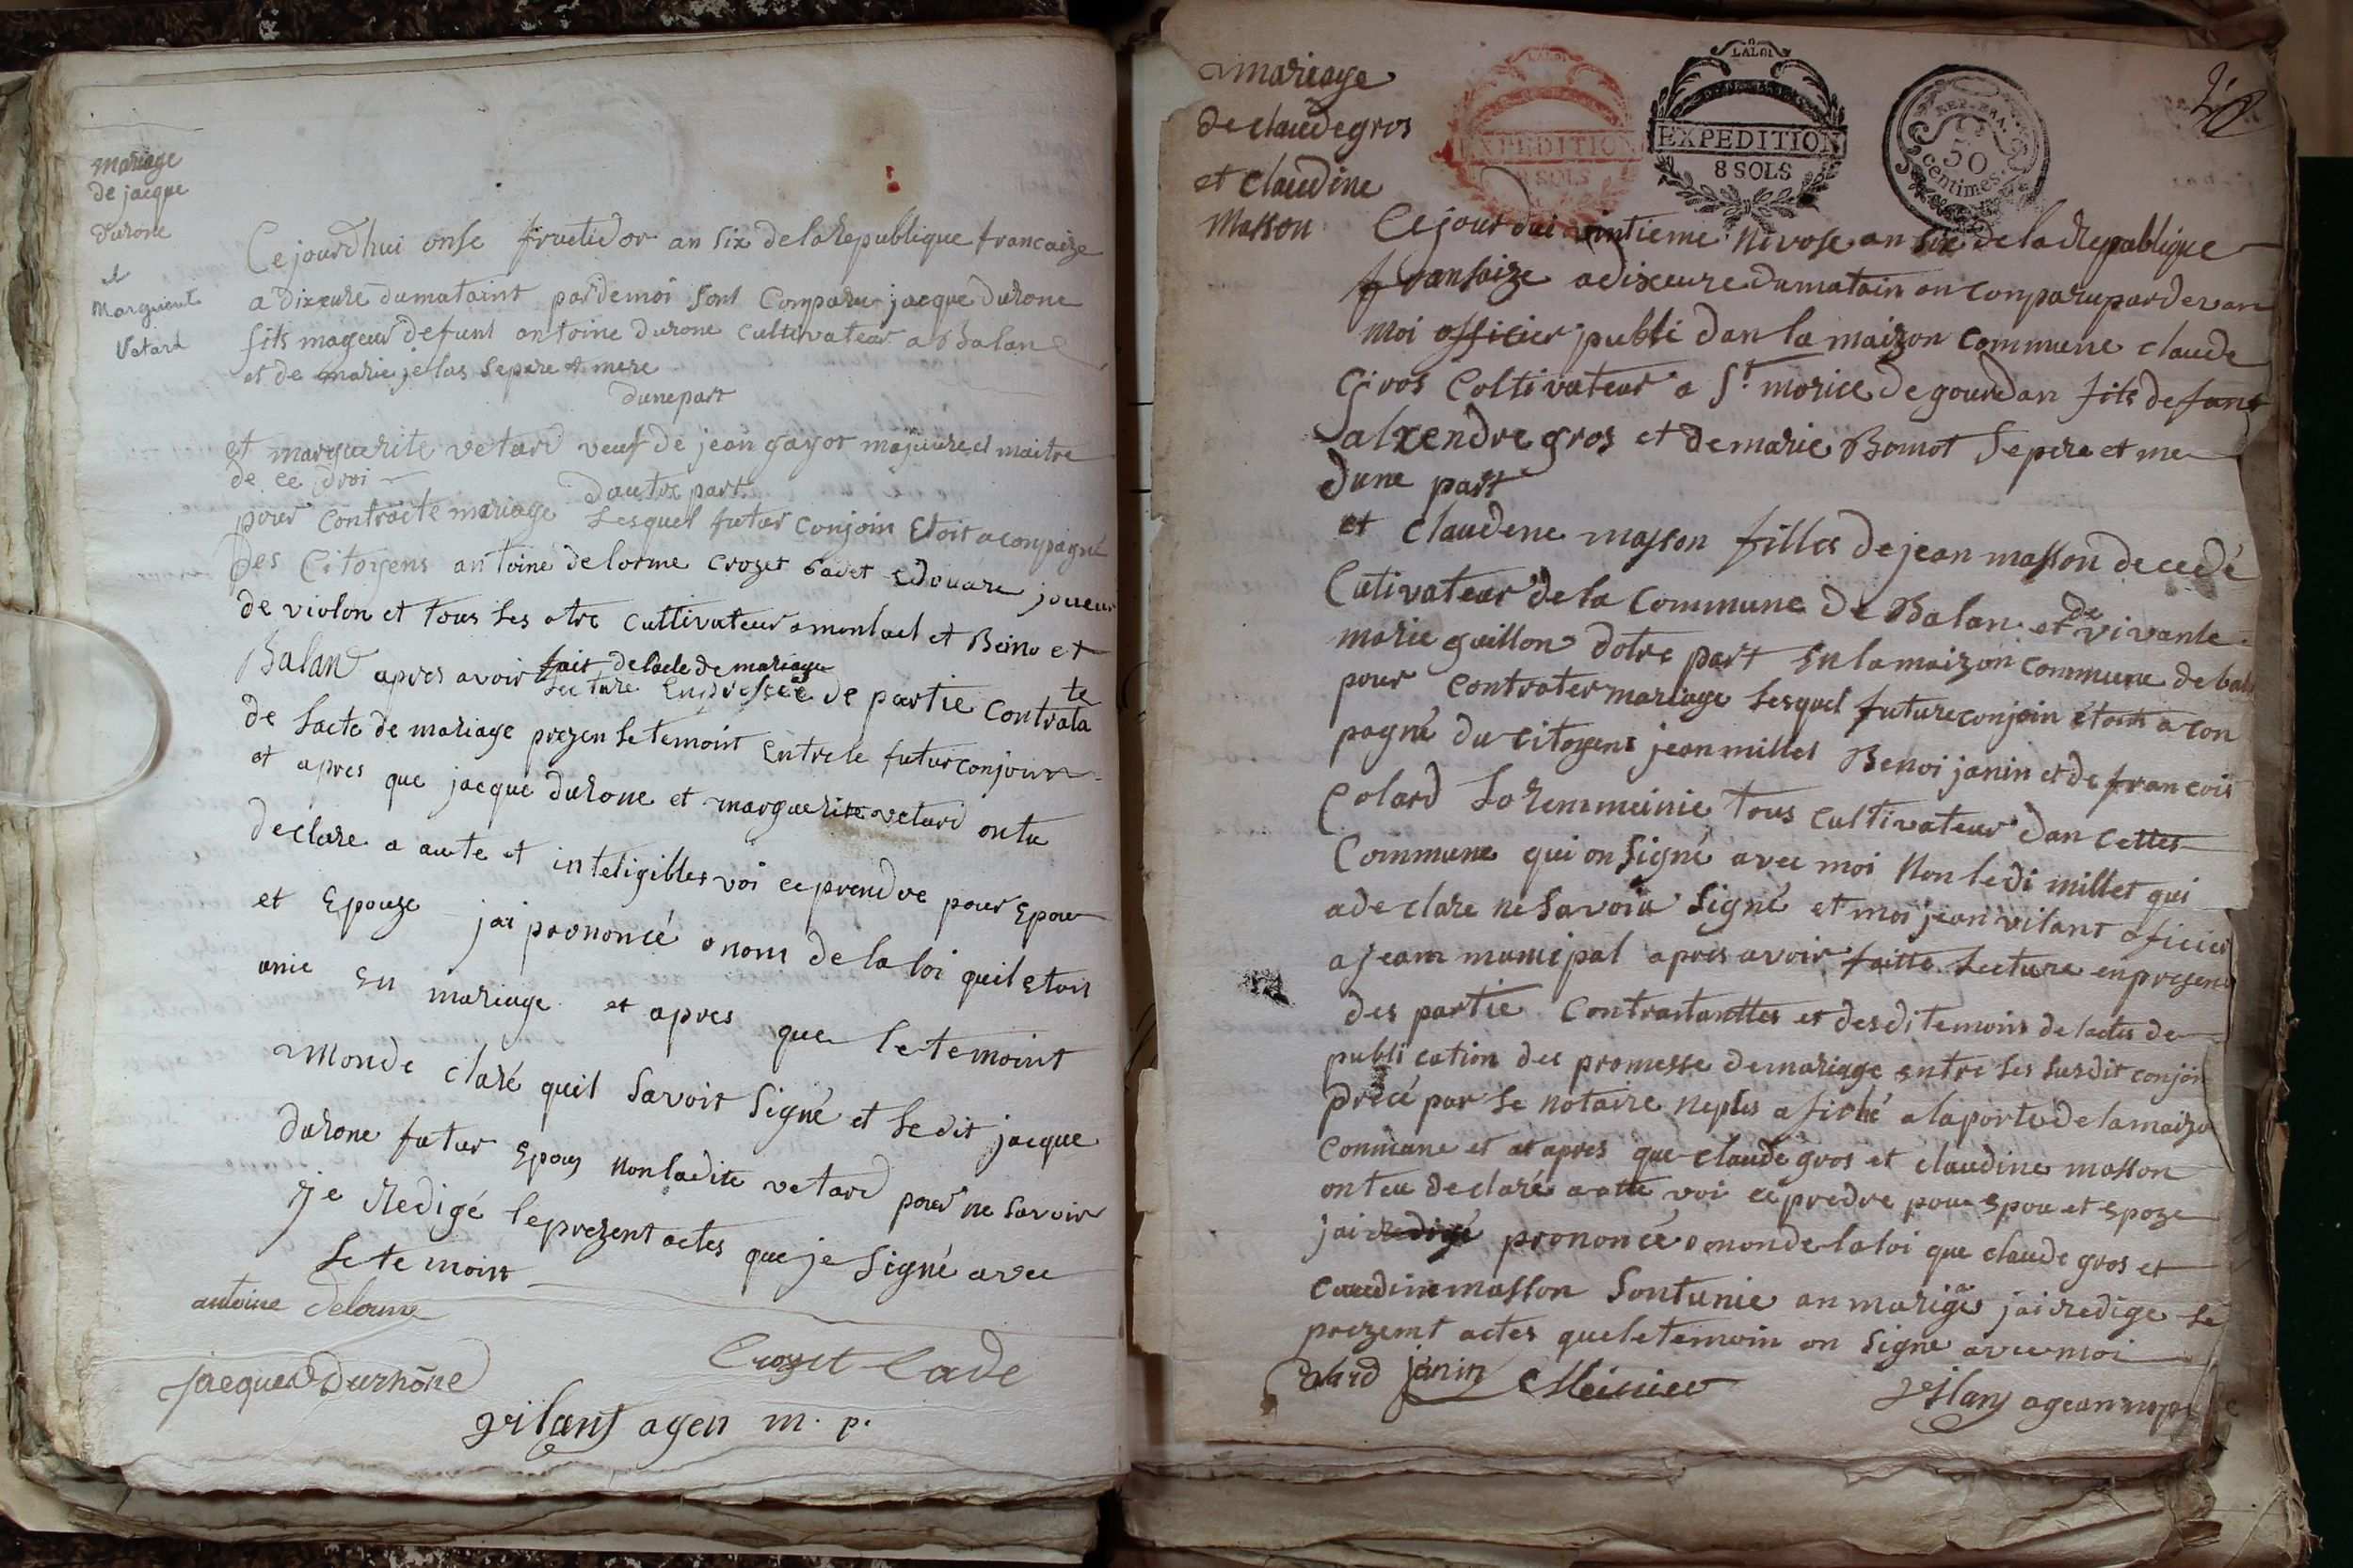 mariage
de jacque
durone
et
Marguerit
Vetard
Ce jourdhui onse fructidor an six de la republique francaize
a dixeure du mataint par demoi sont Comparu jacque durone
fils mageur defunt antoine durone cultivateur a Balan
et de marie jelas se pere et mere
dune part
et marguerite vetard veuf de jean gayot majeure et maitre
de ce droi
dautre part
pour contracte mariage lesquel futur conjoin Etoit aconpagné
des Citoyens antoine delorme crozet cadet edouare joueur
de violon et tous les otre cultivateur a monluel et Beino et
Baland apres avoir fait de lacte de mariage
lecture en presece de partie contrata te
de lacte de mariage prezen le temoint entre le futur conjoin
et apres que jacque durone et marguerite vetard on tu
declare a aute et inteligibles voi ce prendre pour Epou
et Epouze jai prononcé o nom de la loi quil etoit
unie en mariage et apres que le temoint
mon de claré quil savoir signé et le dit jacque
durone futur Epouz non ladite vetard pour ne savoir
je redigé le prezent actes que je signé avec
le temoint
antoine delorme
Crozet Cade
jacque Durhône
vilant agen m. p.
mariage
de claude gros
et Claudine
Masson
LA LOI
EXPEDITION
8 SOLS
LA LOI
EXPEDITION
8 SOLS
REP. FRA.
50
centimes.
Ce jour dui vintieme Nivose an six de la Republique
fransaize a dixeure du matain on conparu par devan
moi officier publi dan la maizon commune claude
Gros Coltivateur a St. morice de gourdan fits defunt
alxendre gros et de marie Bomot se pere et me
dune part
et claudene masson filles de jean masson decedé
Cutivateur de la Commune de Balan et de vivante
marie guillon dotre part en la maizon commune de bala
pour contrater mariage lesquel future conjoin étoit a con
pagné du citoyens jean millet Benoi janin et de francois
Colard loremmeinie tous cultivateur dan cettes
Commune qui on signé avec moi Non ledi millet qui
a declare ne savoir signé et moi jean vilant oficier
ajeam municipal apres avoir faitte lecture en presen
des partie Contrastanttes et desdi temoins de lactes de
publication des promesse de mariage entre les susdit conjoin
précé par le notaire neples afiché a la porte de la maizo
Commune et at apres que claude gros et claudine masson
on teu declaré a otte voi ce predre pour epou et epoze
jai redigé prononcé o nom de la loi que claude gros et
Caudine masson sont unie an marige jai redige le
prezemt actes que le temoin on signe avec moi
Colard janin Meinier
vilans agean mupal